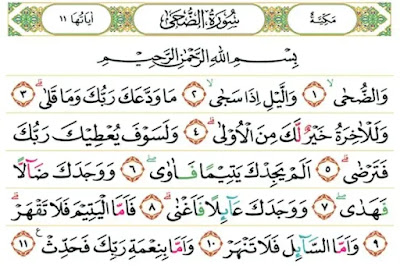 مَكِيَّة ١ سُورَةُ الضُّحَى اٰيَاتُهَا ١١
بِسْمِ اللهِ الرَّحْمٰنِ الرَّحِيْمِ
وَالضُّحٰىۙ ١ وَالَّيْلِ اِذَا سَجٰىۙ ٢ مَا وَدَّعَكَ رَبُّكَ وَمَا قَلٰىۗ ٣
وَلَلْاٰخِرَةُ خَيْرٌ لَّكَ مِنَ الْاُوْلٰىۗ ٤ وَلَسَوْفَ يُعْطِيْكَ رَبُّكَ
فَتَرْضٰىۗ ٥ اَلَمْ يَجِدْكَ يَتِيْمًا فَاٰوٰىۖ ٦ وَوَجَدَكَ ضَاۤلًّا
فَهَدٰىۖ ٧ وَوَجَدَكَ عَاۤىِٕلًا فَاَغْنٰىۗ ٨ فَاَمَّا الْيَتِيْمَ فَلَا تَقْهَرْۗ
٩ وَاَمَّا السَّاۤىِٕلَ فَلَا تَنْهَرْ ١٠ وَاَمَّا بِنِعْمَةِ رَبِّكَ فَحَدِّثْ ࣖ ١١